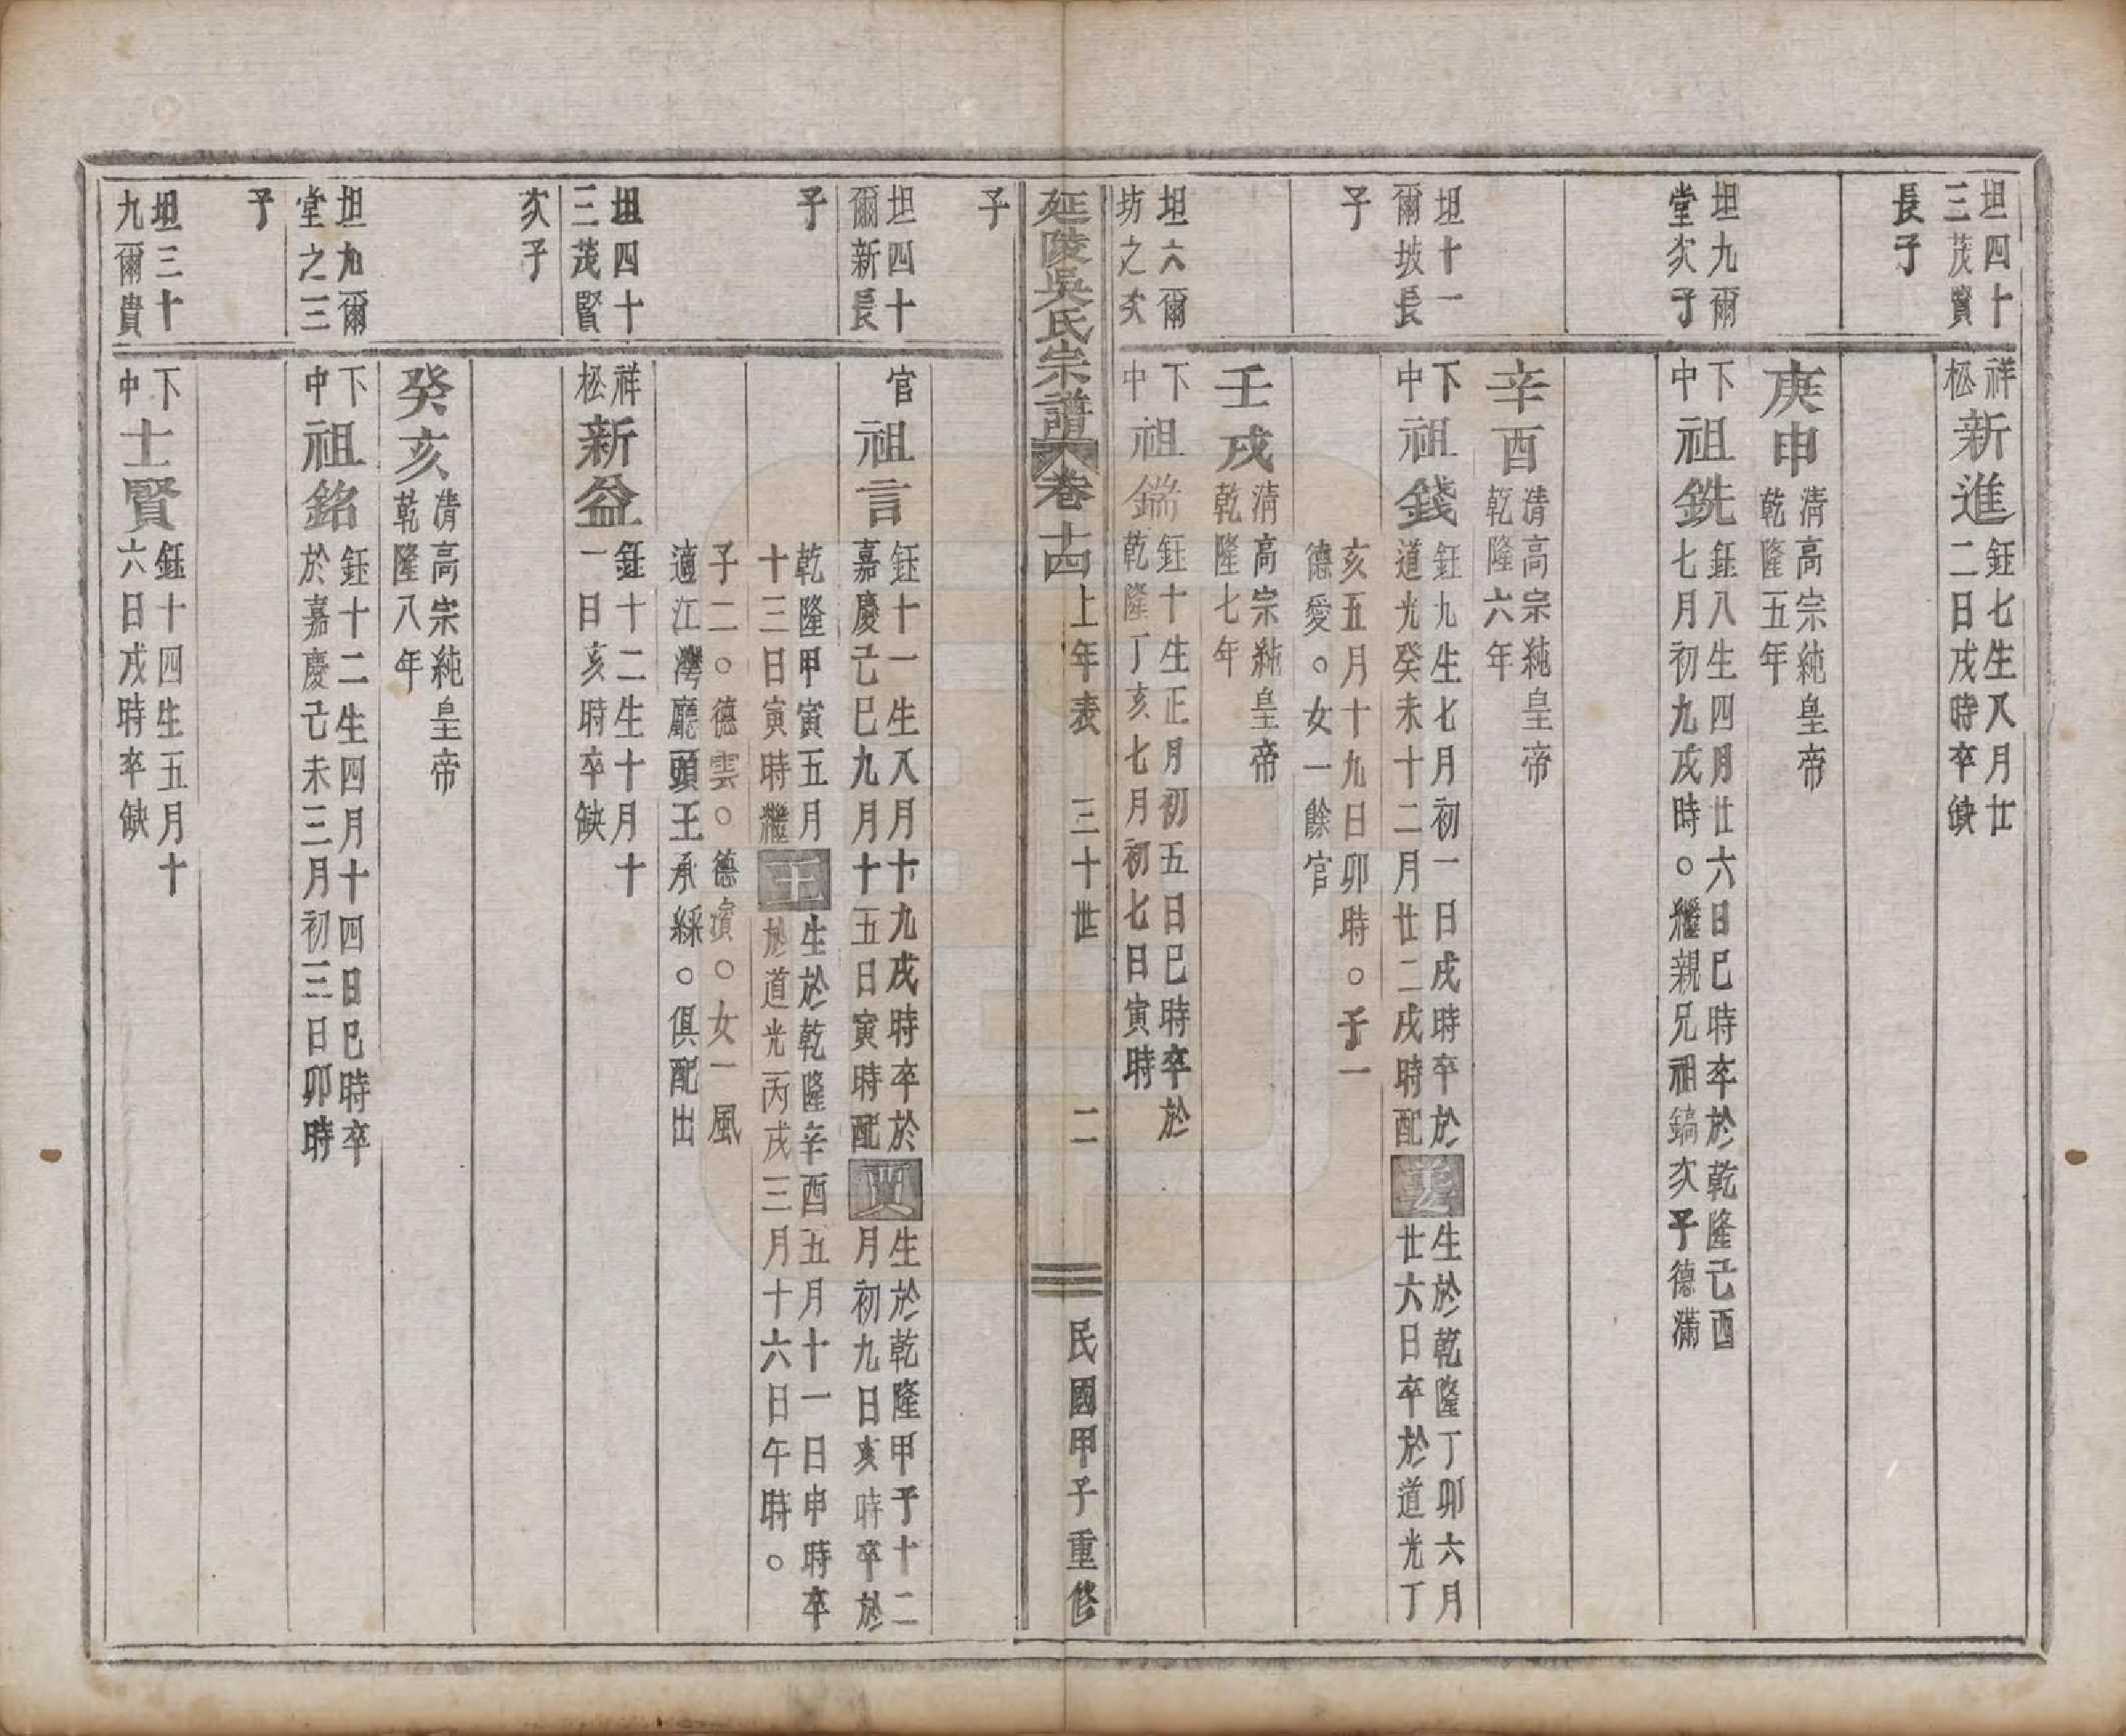 坦四十
三茂賢
長子
祥
松
新進
鈺七生八月廿
二日戌時卒缺
庚申
清高宗純皇帝
乾隆五年
坦九爾
堂次子
下
中
祖銑
鈺八生四月廿六日巳時卒於乾隆己酉
七月初九戌時。繼親兄祖鎬次子德滿
辛酉
清高宗純皇帝
乾隆六年
坦十一
爾坡長
子
下
中
祖錢
鈺九生七月初一日戌時卒於
道光癸未十二月廿二戌時配
姜
生於乾隆丁卯六月
廿六日卒於道光丁
亥五月十九日卯時。子一
德愛。女一餘官
壬戌
清高宗純皇帝
乾隆七年
坦六爾
坊之次
子
下
中
祖鍴
鈺十生正月初五日巳時卒於
乾隆丁亥七月初七日寅時
延陵吳氏宗譜
卷十四
上年表
三十世
二
民國甲子重修
坦四十
爾新長
子
官
祖言
鈺十一生八月十九戌時卒於
嘉慶己巳九月十五日寅時配
生於乾隆甲子十二
月初九日亥時卒於
乾隆甲寅五月
十三日寅時繼
王
生於乾隆辛酉五月十一日申時卒
於道光丙戌三月十六日午時。
子二。德雲。德濱。女一風
適江灣廳頭王承綵。俱配出
坦四十
三茂賢
次子
祥
松
新益
鈺十二生十月十
一日亥時卒缺
癸亥
清高宗純皇帝
乾隆八年
坦九爾
堂之三
子
下
中
祖銘
鈺十二生四月十四日巳時卒
於嘉慶己未三月初三日卯時
坦三十
九爾貴
下
中
士賢
鈺十四生五月十
六日戌時卒缺